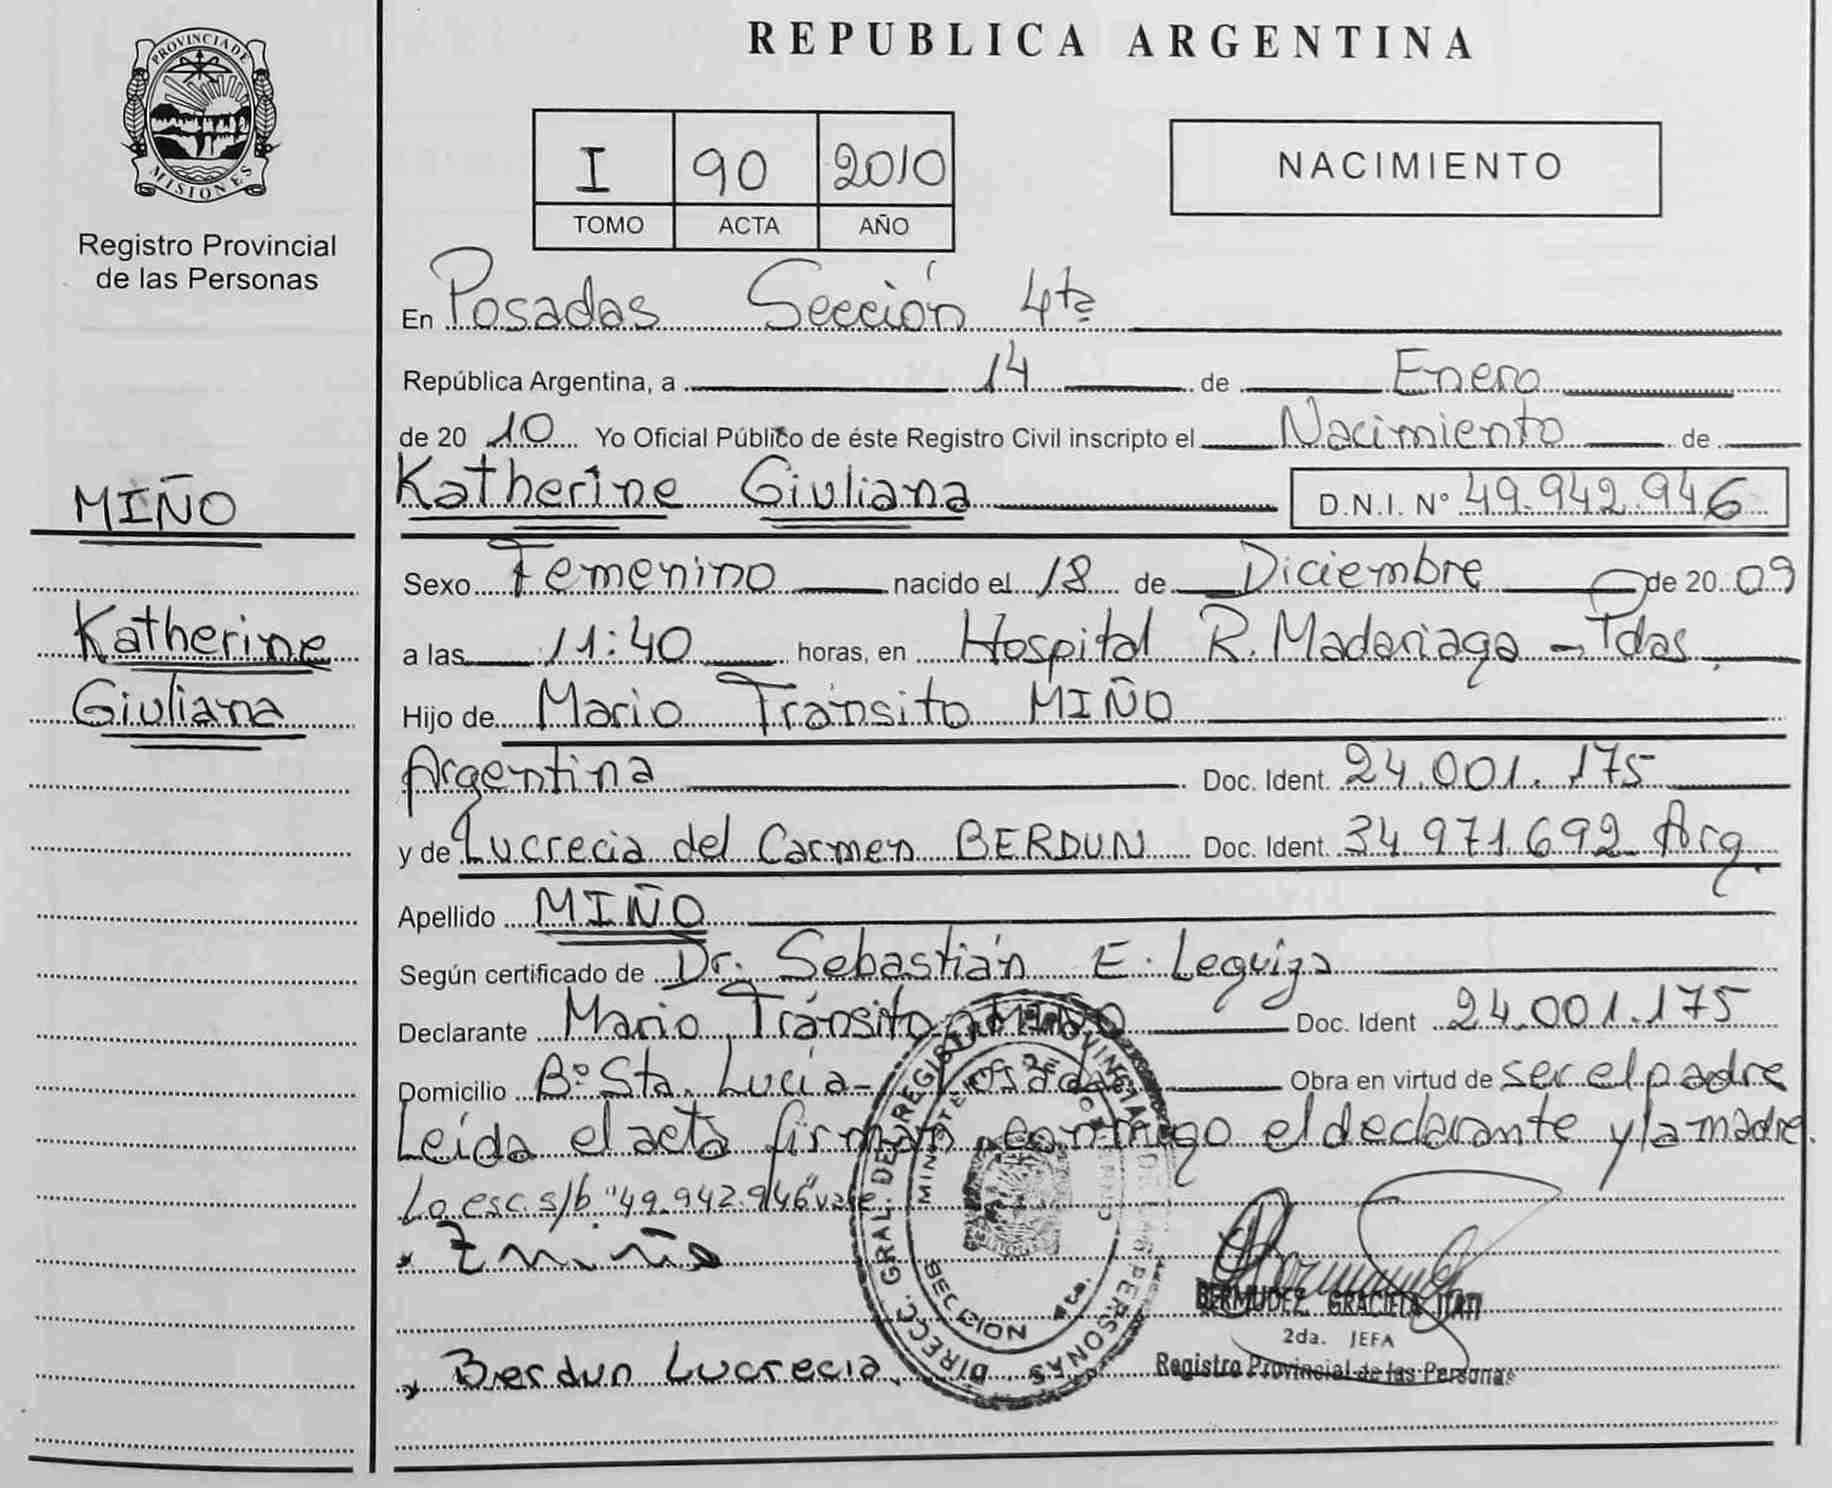 PROVINCIA DE
MISIONES
Registro Provincial
de las Personas
MIÑO
Katherine
Giuliana
REPUBLICA ARGENTINA
I 90 2010
TOMO ACTA AÑO
NACIMIENTO
En Posadas Sección 4ta
República Argentina, a 14 de Enero
de 20 10 Yo Oficial Público de éste Registro Civil inscripto el Nacimiento de
Katherine Giuliana D.N.I. N° 49.942.946
Sexo Femenino nacido el 18 de Diciembre de 20 09
a las 11:40 horas, en Hospital R. Madariaga - Pdas.
Hijo de Mario Tránsito MIÑO
Argentina Doc. Ident. 24.001.175
y de Lucrecia del Carmen BERDUN Doc. Ident. 34.971.692 Arg.
Apellido MIÑO
Según certificado de Dr. Sebastián E. Leguiza
Declarante Mario Tránsito MIÑO Doc. Ident 24.001.175
Domicilio B° Sta. Lucía - Posadas Obra en virtud de ser el padre
Leída el acta firman conmigo el declarante y la madre.
Lo esc. s/b "49.942.946" vale
Miño
DIRECC. GRAL. DE REGISTRO PROVINCIAL DE LAS PERSONAS
SECCION 4ta.
BERMUDEZ GRACIELA ITATI
2da. JEFA
Registro Provincial de las Personas
Berdun Lucrecia.